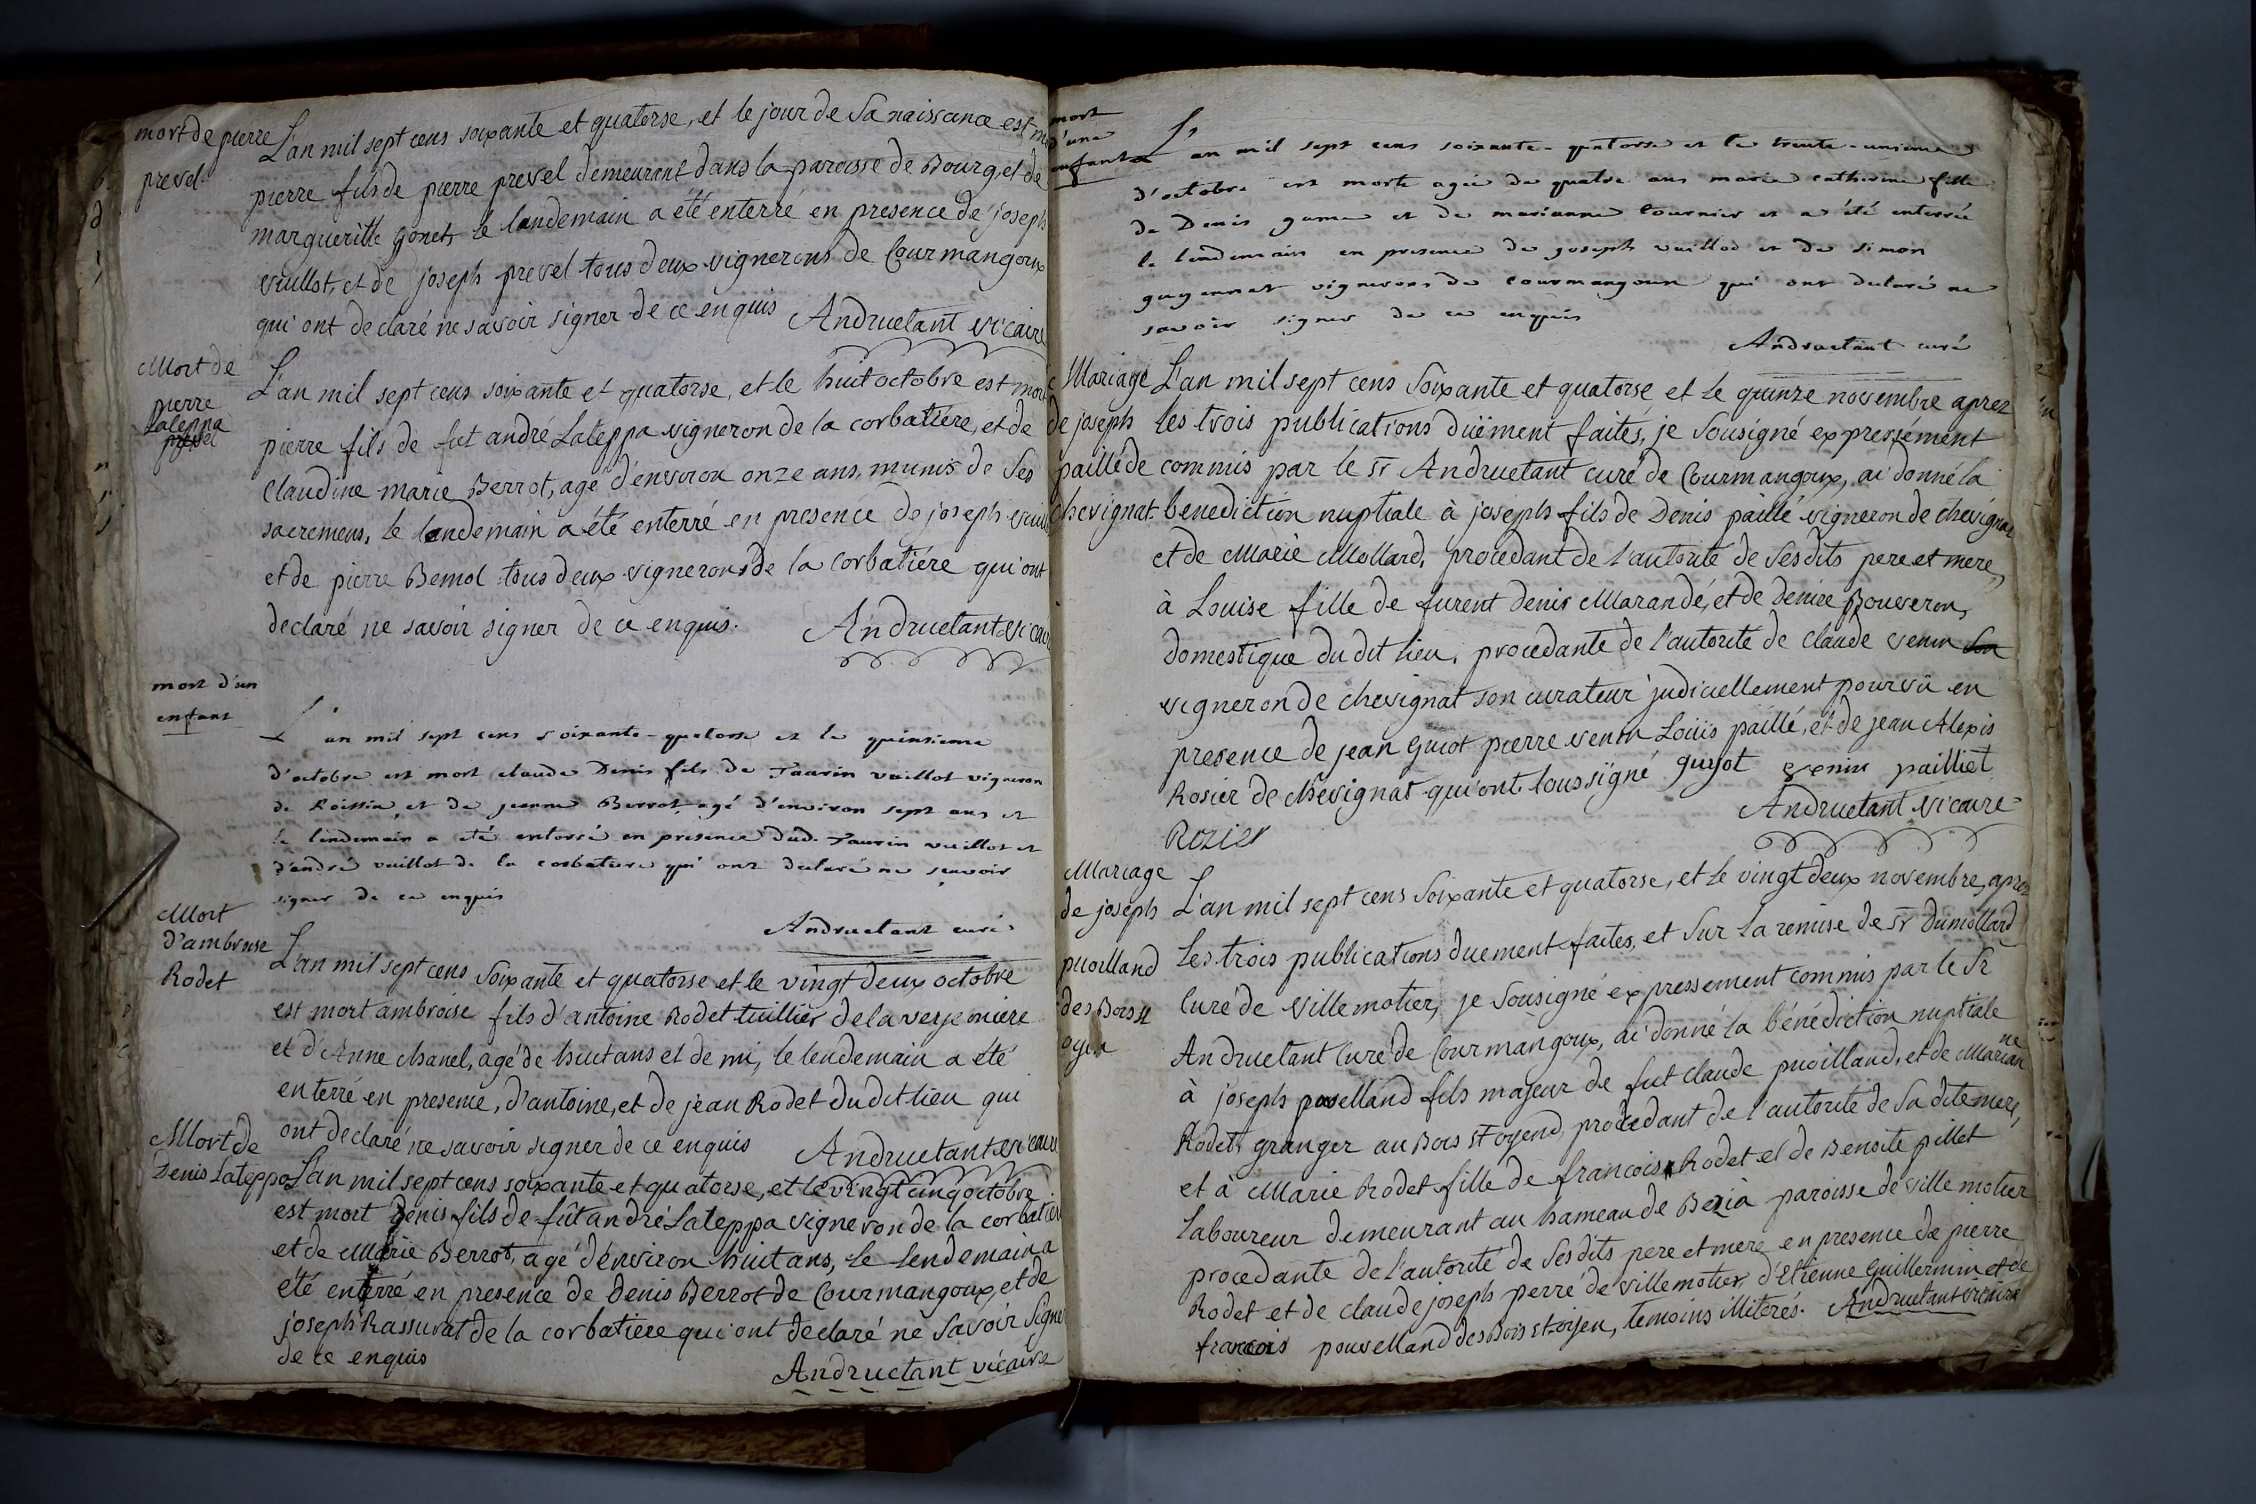 mort de pierre
prevel
L'an mil sept cens soixante et quatorse, et le jour de sa naissance est
pierre fils de pierre prevel demeurant dans la paroisse de Bourg, et de
margueritte Gonet, le landemain a été enterré en presence de joseph
vuillot, et de joseph prevel tous deux vignerons de Courmangoux
qui ont declaré ne savoir signer de ce enquis Andruetant vicaire
Mort de
pierre
Lateppa
prevel
L'an mil sept cens soixante et quatorse, et le huit octobre est mort
pierre fils de fut andré Lateppa vigneron de la corbatiére, et de
Claudine marie Berrot, agé d'environ onze ans, munis de ses
sacremens, le landemain a été enterré en presence de joseph
et de pierre Bemol tous deux vignerons de la corbatiére qui ont
declaré ne savoir signer de ce enquis. Andruetant vicaire
mort d'un
enfant
L'an mil sept cens soixante-quatorse et le quinsieme
d'octobre est mort claude Denis fils de Taurin vuillot vigneron
de Roissia et de jeanne Berrot agé d'environ sept ans et
le lendemain a été enterré en presence dud. Taurin vuillot et
d'andré vuillot de la corbatiere qui ont declaré ne sçavoir
signer de ce enquis
Andruetant curé
Mort
d'ambroise
Rodet
L'an mil sept cens soixante et quatorse et le vingt deux octobre
est mort ambroise fils d'antoine Rodet tuillier de la verjonniere
et d'Anne Chanel, agé de huit ans et demi, le lendemain a été
enterré en presence, d'antoine, et de jean Rodet dudit lieu qui
ont declaré ne savoir signer de ce enquis Andruetant vicaire
Mort de
Denis Lateppa
L'an mil sept cens soixante et quatorse, et le vingt cinq octobre
est mort Denis fils de fût andré Lateppa vigneron de la corbatiere
et de Marie Berrot, agé d'environ huit ans, le lendemain a
été enterré en presence de Denis Berrot de Courmangoux, et de
joseph Rassurat de la corbatiere qui ont declaré ne savoir signer
de ce enquis
Andruetant vicaire
mort
d'une
enfant
L'an mil sept cens soixante-quatorse et le trente-unieme
d'octobre est morte agée de quatre ans marie catherine fille
de Denis game et de marianne tournier et a été enterrée
le lendemain en presence de joseph vuillod et de simon
guyennet vignerons de courmangoux qui ont declaré ne
savoir signer de ce enquis
Andruetant curé
Mariage
de joseph
paillé de
chevignat
L'an mil sept cens soixante et quatorse et le quinze novembre aprez
les trois publications düëment faites, je sousigné expressément
commis par le sr Andruetant curé de Courmangoux, ai donné la
benediction nuptiale à joseph fils de Denis paillé vigneron de chevignat
et de Marie Mollard, procedant de l'autorité de sesdits pere et mere,
à Louise fille de furent denis Marandé, et de Denise Bouveron,
domestique dudit lieu, procedante de l'autorité de claude venin son
vigneron de chevignat son curateur judiciellement pourvû en
presence de jean guiot pierre venin Louis paillé, et de jean Alexis
Rosier de chevignat qui ont tous signé guyot venin pailliet
Rozier
Andruetant vicaire
Mariage
de joseph
puoilland
des Bois st
oyen
L'an mil sept cens soixante et quatorse, et le vingt deux novembre, aprez
Les trois publications duement faites, et sur la remise de sr Dumollard
Curé de villemotier, je sousigné expressement commis par le Sr
Andruetant Curé de Courmangoux, ai donné la bénédiction nuptiale
à joseph puvelland fils majeur de fut claude puoilland, et de Marianne
Rodet, granger au Bois st oyend, procedant de l'autorité de sa dite mere,
et à Marie Rodet fille de francois Rodet et de Benoite pillet
Laboureur demeurant au hameau de Bezia paroisse de villemotier
procedante de l'autorité de sesdits pere et mere en presence de pierre
Rodet et de claude joseph perré de villemotier, d'Etienne Guillermin et de
francois pouvelland des Bois st oyen, temoins illiterés. Andruetant vicaire